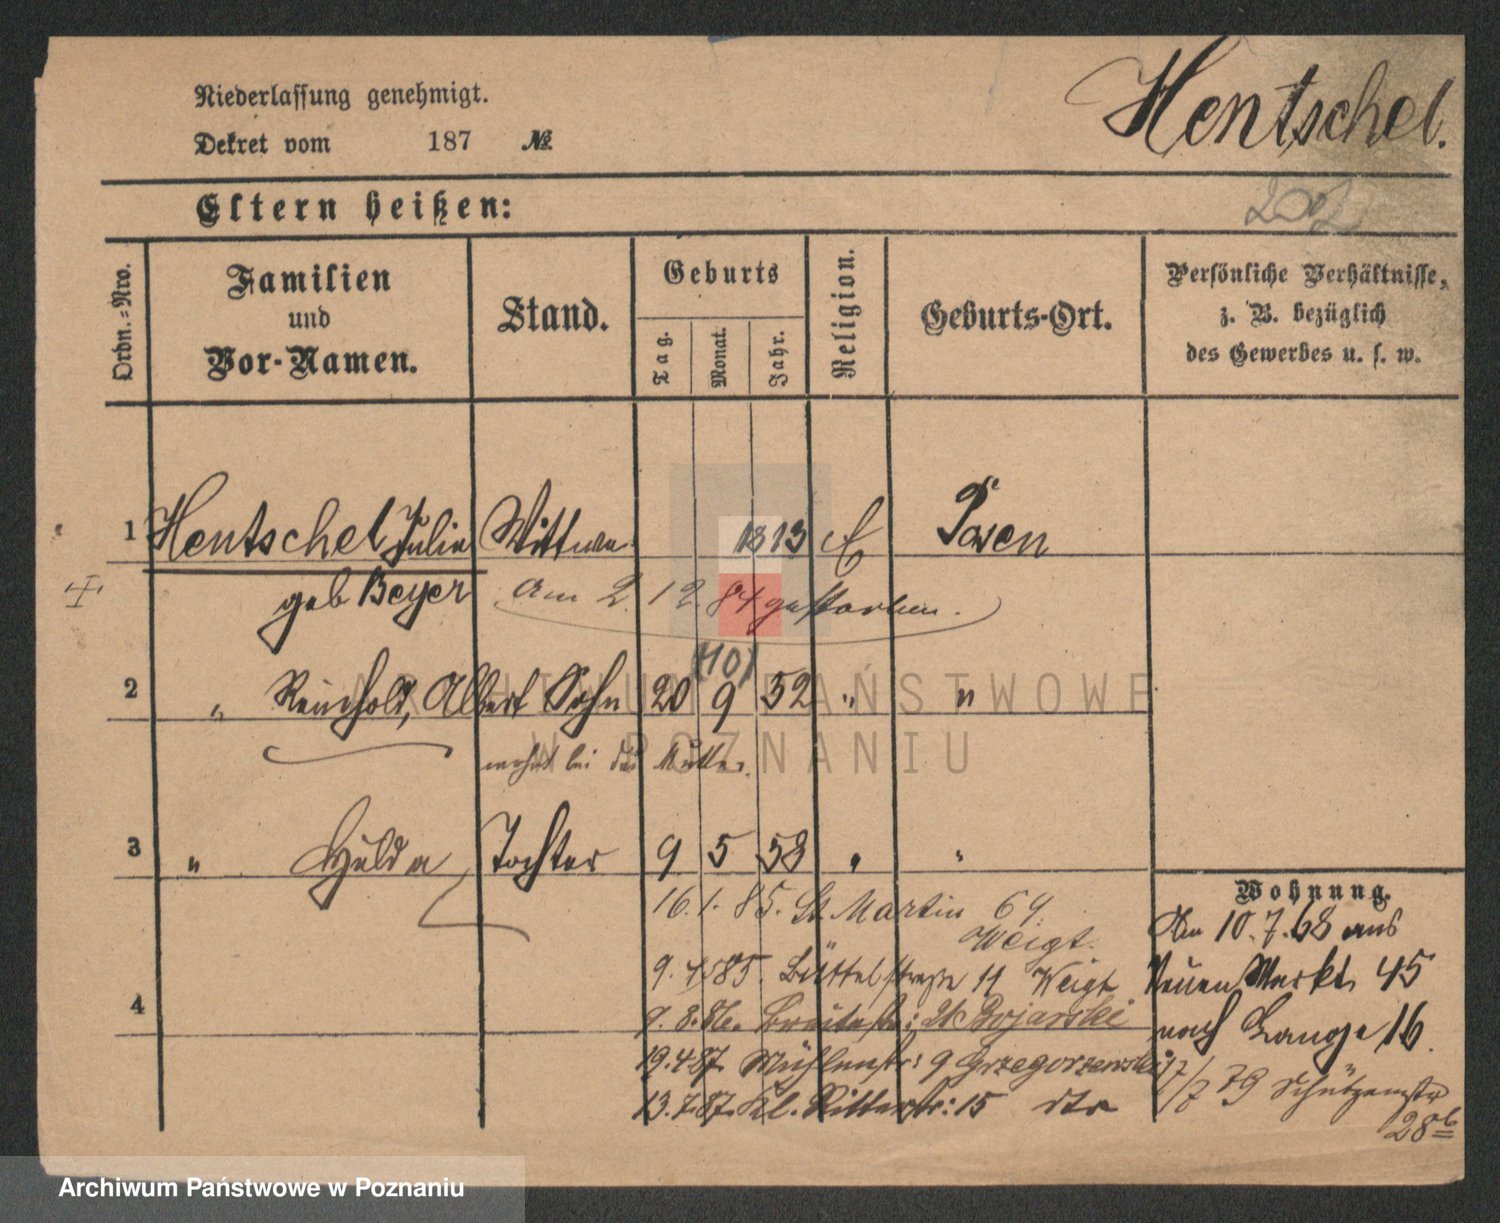 Niederlassung genehmigt.
Dekret vom 187 №
Hentschel.
Eltern heißen:
Ordn.-Nro.
Familien
und
Vor-Namen.
Stand.
Geburts
Tag.
Monat.
Jahr.
Religion.
Geburts-Ort.
Persönliche Verhältnisse,
z. B. bezüglich
des Gewerbes u. s. w.
1 Hentschel Julie Wittwe 1813 Posen
geb Beyer am 2. 12 84 gestorben.
(10)
2 " Reinhold, Albert Sohn 20 9 52 " "
wohnt bei der Mutter.
3 " Hulda Tochter 9 5 53 " "
Wohnung.
16. 1. 85. St. Martin 64.
Weigt.
Am 10. 7. 68 aus
9. 4. 85. Büttelstraße 11 Weigt
Neuen Markt 45
4
9. 8. 86. Breitestr: 21 Bojarski
nach Lange 16.
19. 4. 87. Mühlenstr: 9 Grzegorzewski
17/7 79 Schützenstr
28b
13. 7. 87. Kl. Ritterstr: 15 dto
ARCHIWUM PAŃSTWOWE
W POZNANIU
Archiwum Państwowe w Poznaniu